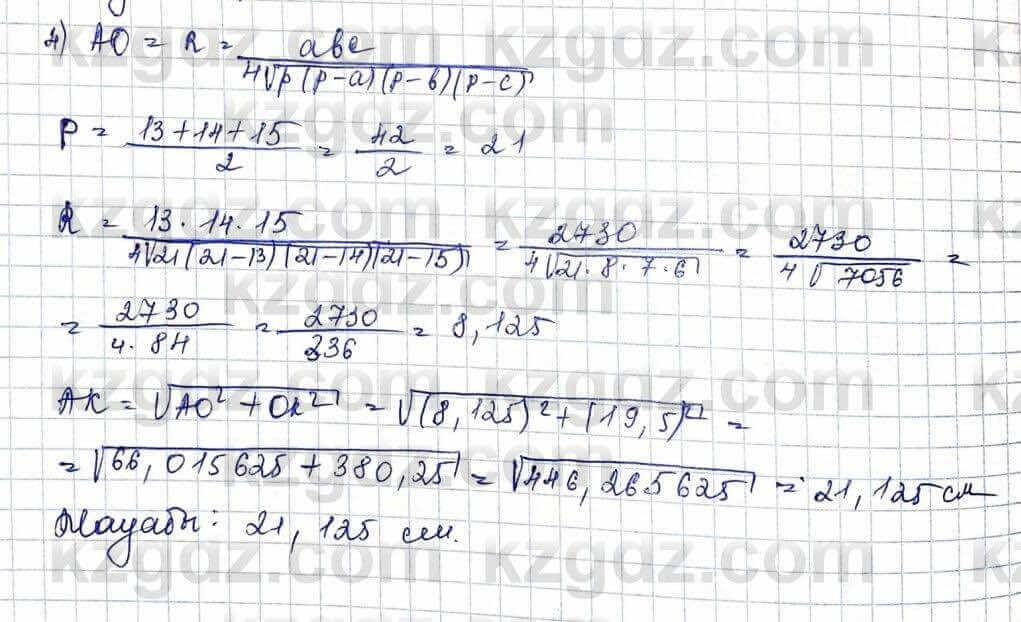 4) AO = R = abc / 4√p(p-a)(p-b)(p-c)
P = 13+14+15 / 2 = 42 / 2 = 21
R = 13·14·15 / 4√21(21-13)(21-14)(21-15) = 2730 / 4√21·8·7·6 = 2730 / 4√7056 =
= 2730 / 4·84 = 2730 / 336 = 8,125
AK = √AO²+OK² = √(8,125)²+(19,5)² =
= √66,015625+380,25 = √446,265625 = 21,125 см
Жауабы: 21,125 см.
kzgdz.com